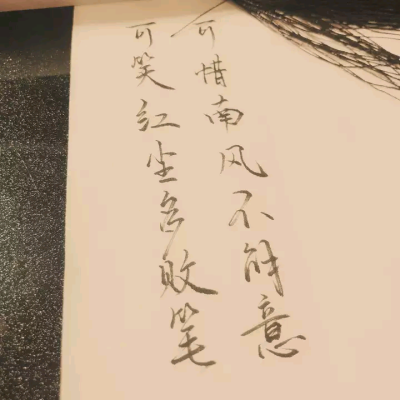 可惜南风不解意
可笑红尘多败笔